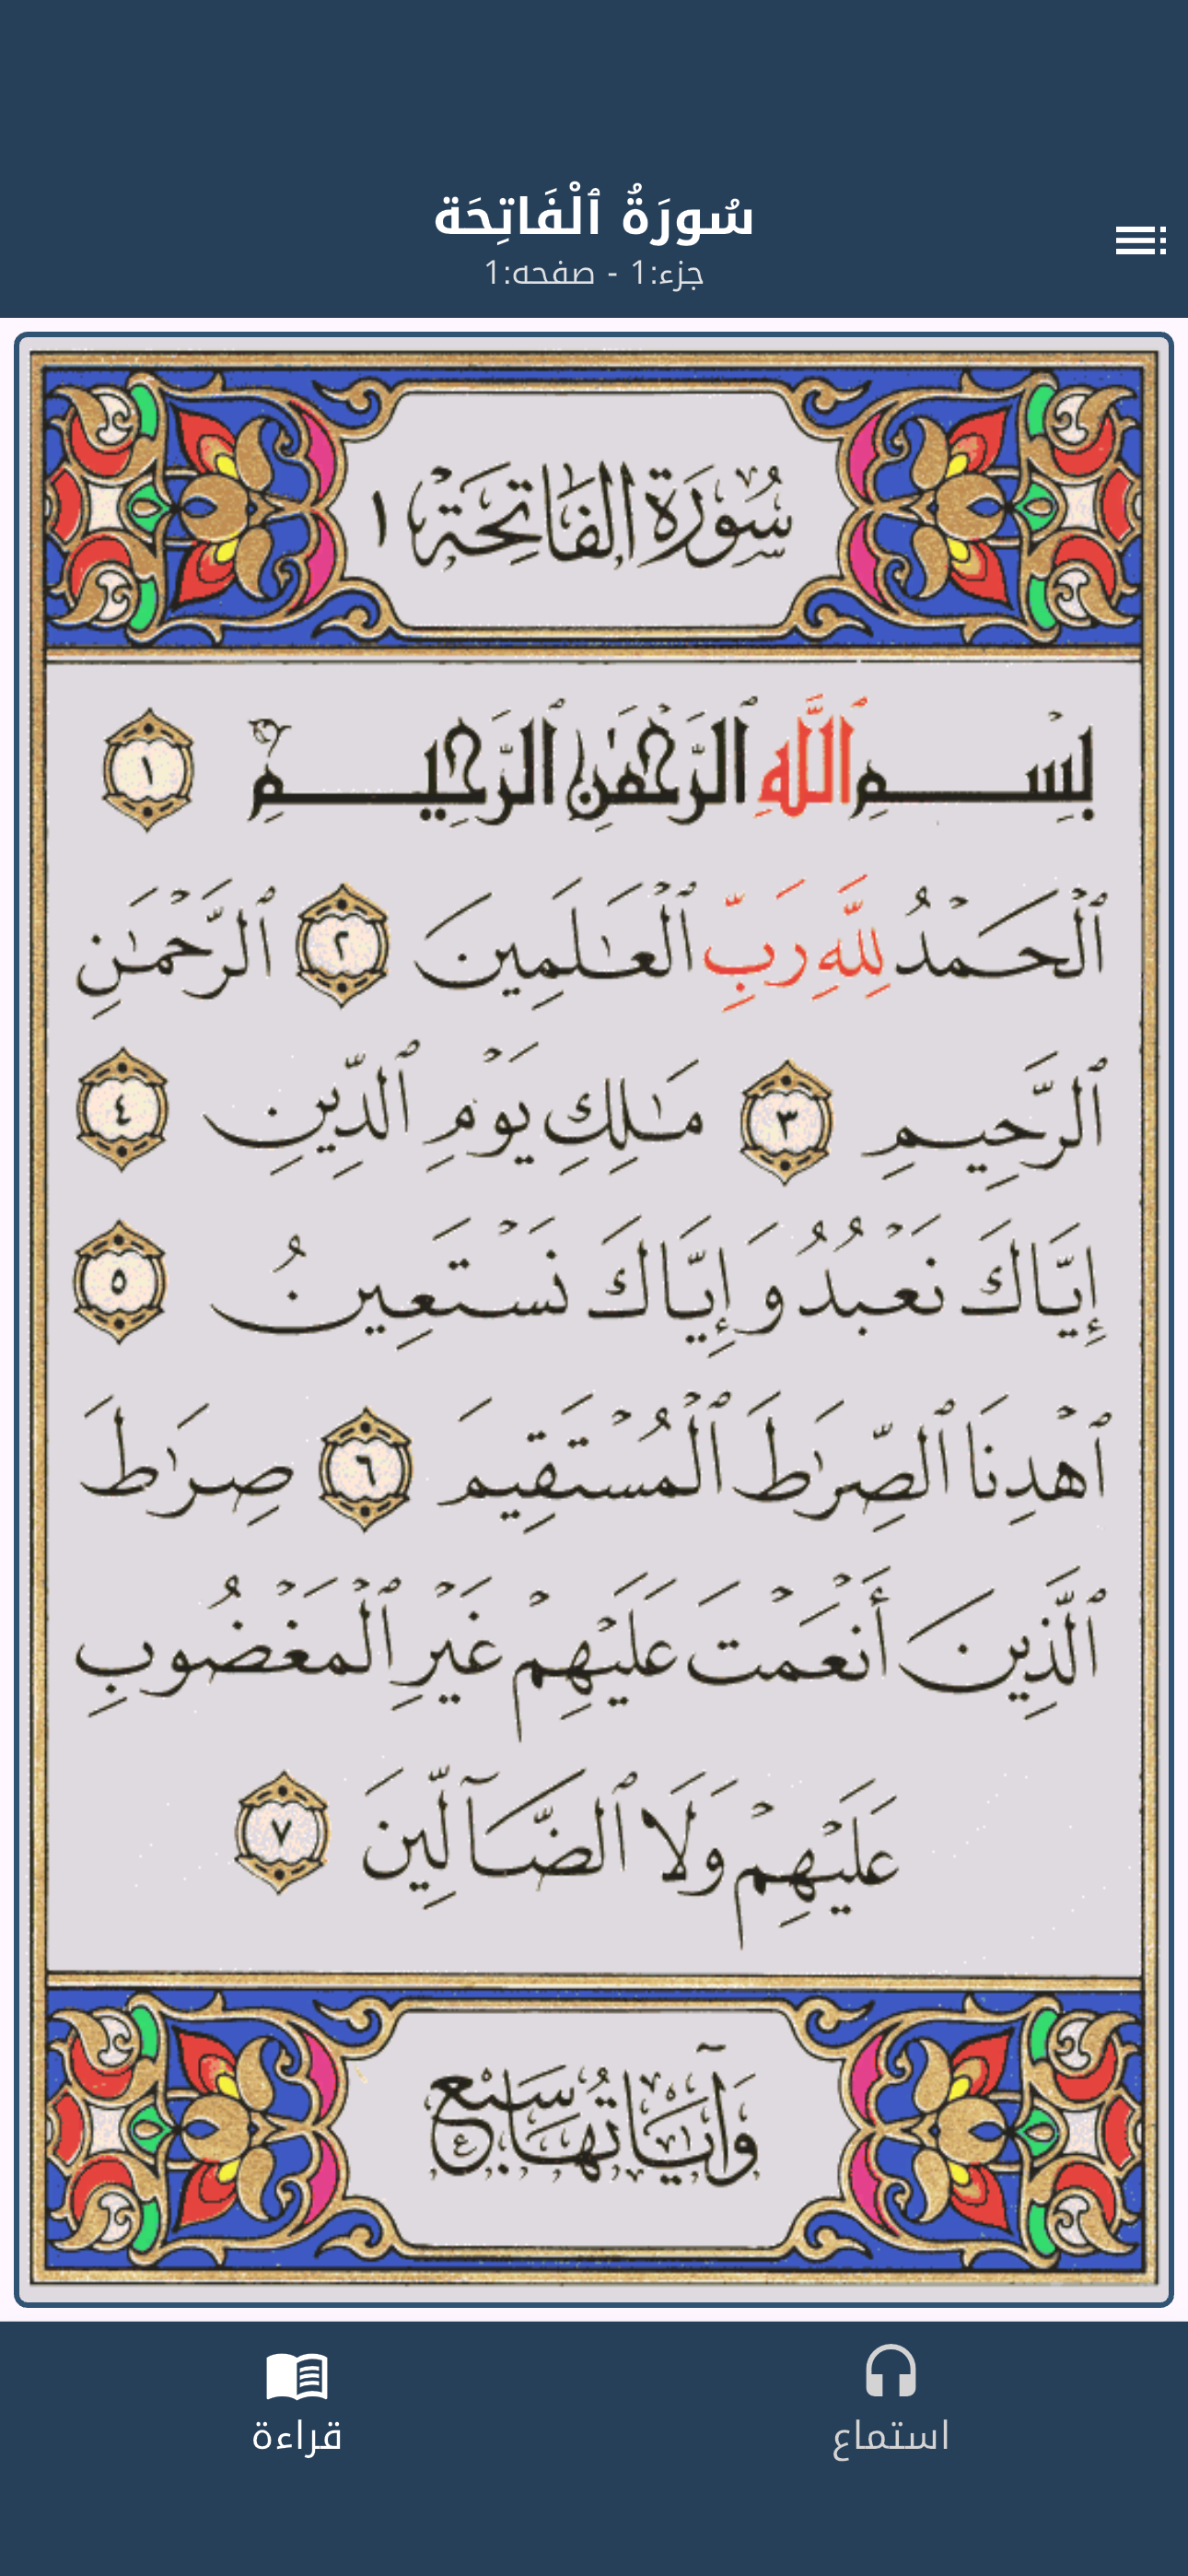 سُورَةُ ٱلْفَاتِحَة
جزء:1 - صفحه:1
سُورَةُ الفَاتِحَةِ ١
بِسۡمِ ٱللَّهِ ٱلرَّحۡمَٰنِ ٱلرَّحِيمِ ١
ٱلۡحَمۡدُ لِلَّهِ رَبِّ ٱلۡعَٰلَمِينَ ٢ ٱلرَّحۡمَٰنِ
ٱلرَّحِيمِ ٣ مَٰلِكِ يَوۡمِ ٱلدِّينِ ٤
إِيَّاكَ نَعۡبُدُ وَإِيَّاكَ نَسۡتَعِينُ ٥
ٱهۡدِنَا ٱلصِّرَٰطَ ٱلۡمُسۡتَقِيمَ ٦ صِرَٰطَ
ٱلَّذِينَ أَنۡعَمۡتَ عَلَيۡهِمۡ غَيۡرِ ٱلۡمَغۡضُوبِ
عَلَيۡهِمۡ وَلَا ٱلضَّآلِّينَ ٧
وَآيَاتُهَا سَبْع
قراءة
استماع